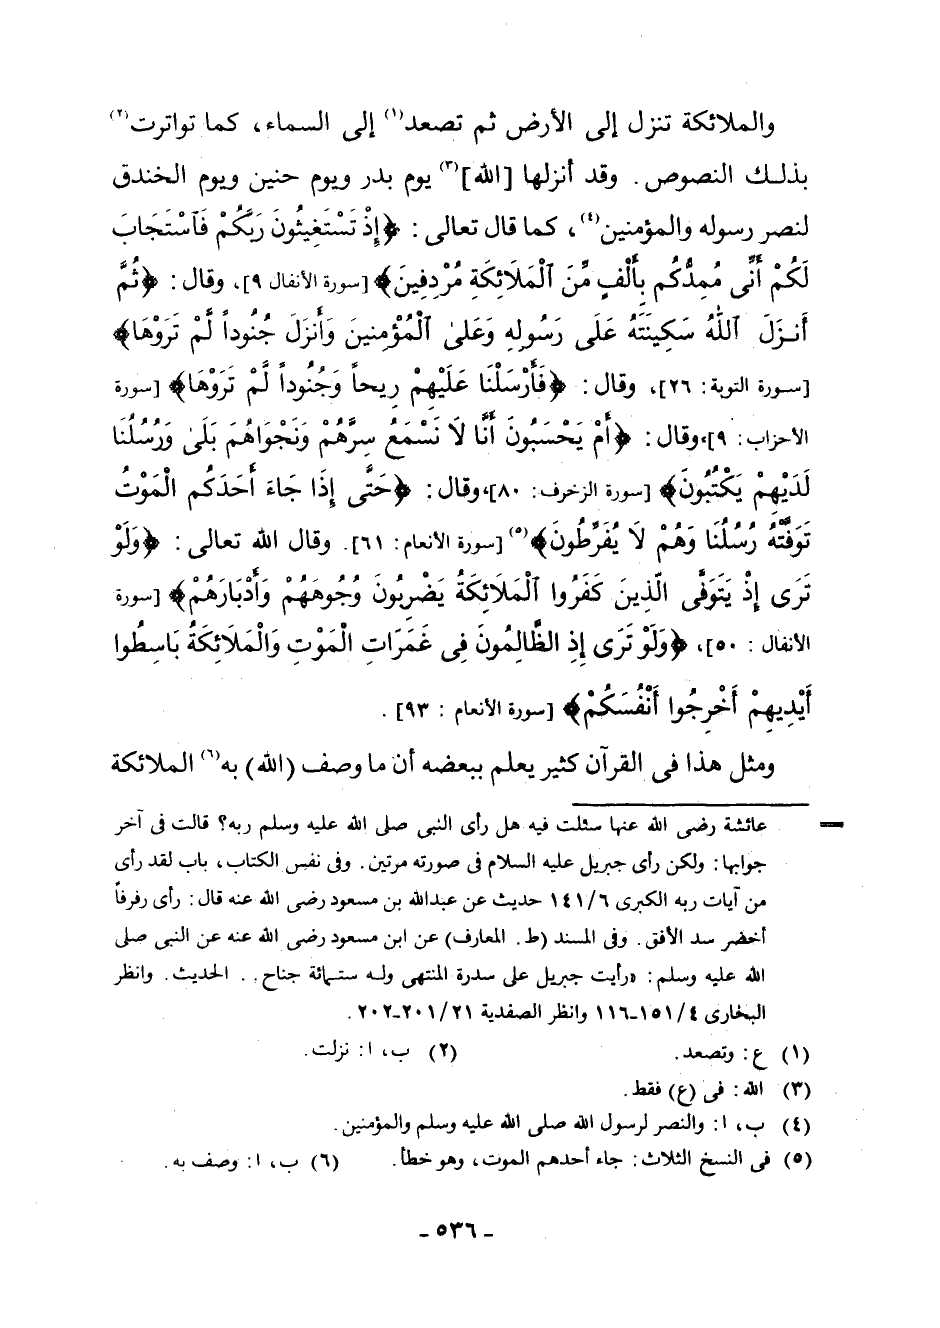 والملائكة تنزل إلى الأرض ثم تصعد(١) إلى السماء، كما تواترت(٢)
بذلك النصوص. وقد أنزلها [الله](٣) يوم بدر ويوم حنين ويوم الخندق
لنصر رسوله والمؤمنين(٤)، كما قال تعالى: ﴿إِذْ تَسْتَغِيثُونَ رَبَّكُمْ فَاسْتَجَابَ
لَكُمْ أَنِّى مُمِدُّكُم بِأَلْفٍ مِّنَ ٱلْمَلَائِكَةِ مُرْدِفِينَ﴾ [سورة الأنفال ٩]، وقال: ﴿ثُمَّ
أَنزَلَ ٱللَّهُ سَكِينَتَهُ عَلَى رَسُولِهِ وَعَلَىٰ ٱلْمُؤْمِنِينَ وَأَنزَلَ جُنُوداً لَّمْ تَرَوْهَا﴾
[سورة التوبة: ٢٦]، وقال: ﴿فَأَرْسَلْنَا عَلَيْهِمْ رِيحاً وَجُنُوداً لَّمْ تَرَوْهَا﴾ [سورة
الأحزاب: ٩]،وقال: ﴿أَمْ يَحْسَبُونَ أَنَّا لَا نَسْمَعُ سِرَّهُمْ وَنَجْوَاهُمَ بَلَىٰ وَرُسُلُنَا
لَدَيْهِمْ يَكْتُبُونَ﴾ [سورة الزخرف: ٨٠]،وقال: ﴿حَتَّى إِذَا جَاءَ أَحَدَكُم الْمَوْتُ
تَوَفَّتْهُ رُسُلُنَا وَهُمْ لَا يُفَرِّطُونَ﴾(٥) [سورة الأنعام: ٦١]. وقال الله تعالى: ﴿وَلَوْ
تَرَى إِذْ يَتَوَفَّى الَّذِينَ كَفَرُوا ٱلْمَلَائِكَةُ يَضْرِبُونَ وُجُوهَهُمْ وَأَدْبَارَهُمْ﴾ [سورة
الأنفال: ٥٠]، ﴿وَلَوْ تَرَى إِذِ الظَّالِمُونَ فِى غَمَرَاتِ الْمَوْتِ وَالْمَلَائِكَةُ بَاسِطُوا
أَيْدِيهِمْ أَخْرِجُوا أَنْفُسَكُمْ﴾ [سورة الأنعام: ٩٣].
ومثل هذا فى القرآن كثير يعلم ببعضه أن ما وصف (الله) به(٦) الملائكة
عائشة رضى الله عنها سئلت فيه هل رأى النبى صلى الله عليه وسلم ربه؟ قالت فى آخر
جوابها: ولكن رأى جبريل عليه السلام فى صورته مرتين. وفى نفس الكتاب، باب لقد رأى
من آيات ربه الكبرى ١٤١/٦ حديث عن عبدالله بن مسعود رضى الله عنه قال: رأى رفرفاً
أخضر سد الأفق. وفى المسند (ط. المعارف) عن ابن مسعود رضى الله عنه عن النبى صلى
الله عليه وسلم: «رأيت جبريل على سدرة المنتهى وله ستمائة جناح... الحديث. وانظر
البخارى ١٥١/٤-١١٦ وانظر الصفدية ٢٠١/٢١-٢٠٢.
(١) ع: وتصعد. (٢) ب، ا: نزلت.
(٣) الله: فى (ع) فقط.
(٤) ب، ا: والنصر لرسول الله صلى الله عليه وسلم والمؤمنين.
(٥) فى النسخ الثلاث: جاء أحدهم الموت، وهو خطأ. (٦) ب، ا: وصف به.
- ٥٣٦ -